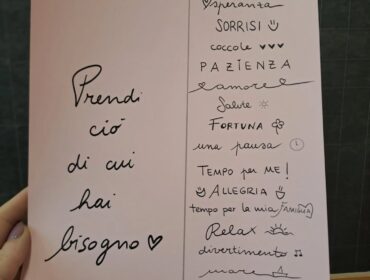 Prendi
ciò
di cui
hai
bisogno
speranza
SORRISI
coccole
PAZIENZA
amore
Salute
FORTUNA
una pausa
TEMPO per ME!
ALLEGRIA
tempo per la mia FAMIGLIA
Relax
divertimento
mare